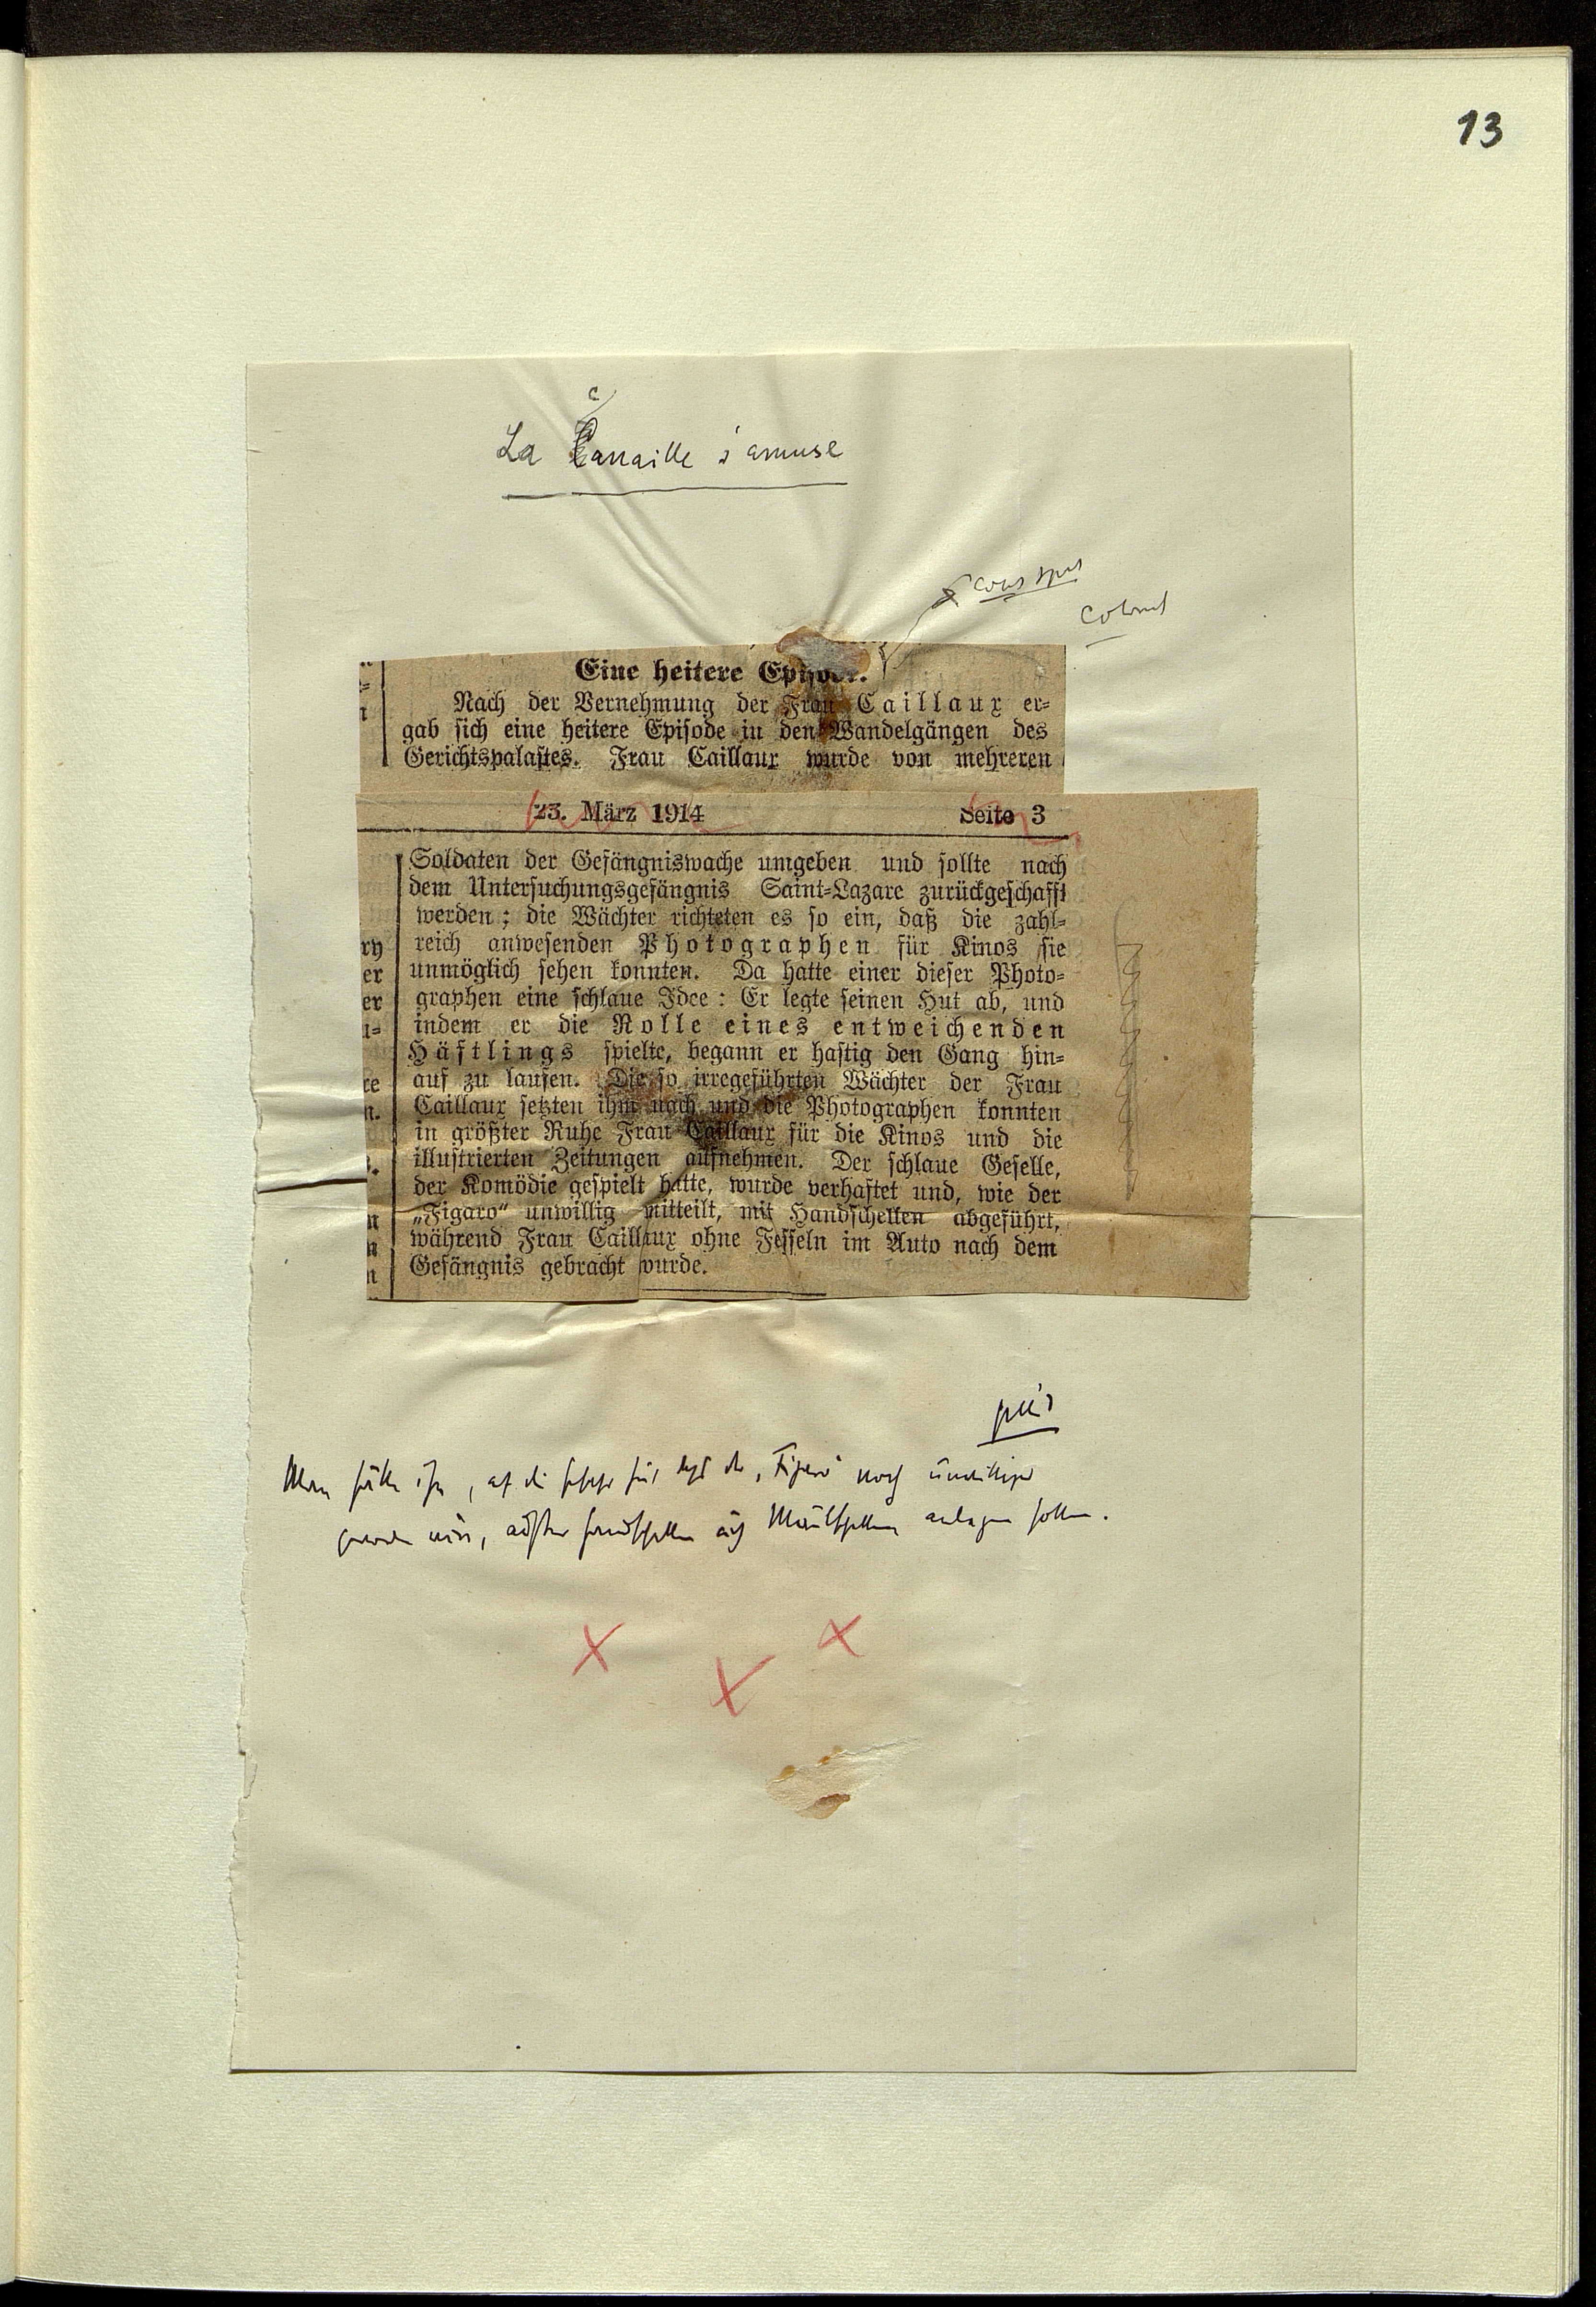 13
c
La Canaille s'amuse
Eine heitere Episode.
Nach der Vernehmung der Frau Caillaux er-
gab sich eine heitere Episode in den Wandelgängen des
Gerichtspalastes. Frau Caillaux wurde von mehreren
23. März 1914 Seite 3
Soldaten der Gefängniswache umgeben und sollte nach
dem Untersuchungsgefängnis Saint-Lazare zurückgeschafft
werden; die Wächter richteten es so ein, daß die zahl-
reich anwesenden Photographen für Kinos sie
unmöglich sehen konnten. Da hatte einer dieser Photo-
graphen eine schlaue Idee: Er legte seinen Hut ab, und
indem er die Rolle eines entweichenden
Häftlings spielte, begann er hastig den Gang hin-
auf zu laufen. Die so irregeführten Wächter der Frau
Caillaux setzten ihm nach und die Photographen konnten
in größter Ruhe Frau Caillaux für die Kinos und die
illustrierten Zeitungen aufnehmen. Der schlaue Geselle,
der Komödie gespielt hatte, wurde verhaftet und, wie der
„Figaro“ unwillig mitteilt, mit Handschellen abgeführt,
während Frau Caillaux ohne Fesseln im Auto nach dem
Gefängnis gebracht wurde.
ry
er
er
u-
ce
n.
n
n
n
Man hätte ihm, auf die Gefahr hin daß der „Figaro“ noch unwilliger
geworden wäre, außer Handschellen auch Maulschellen anlegen sollen.